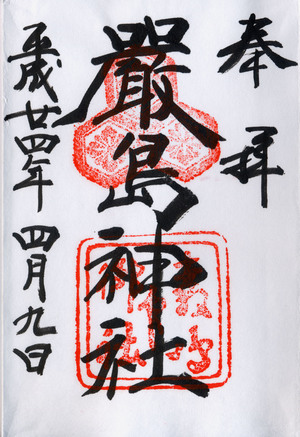 奉拝
嚴島神社
平成廿四年 四月九日